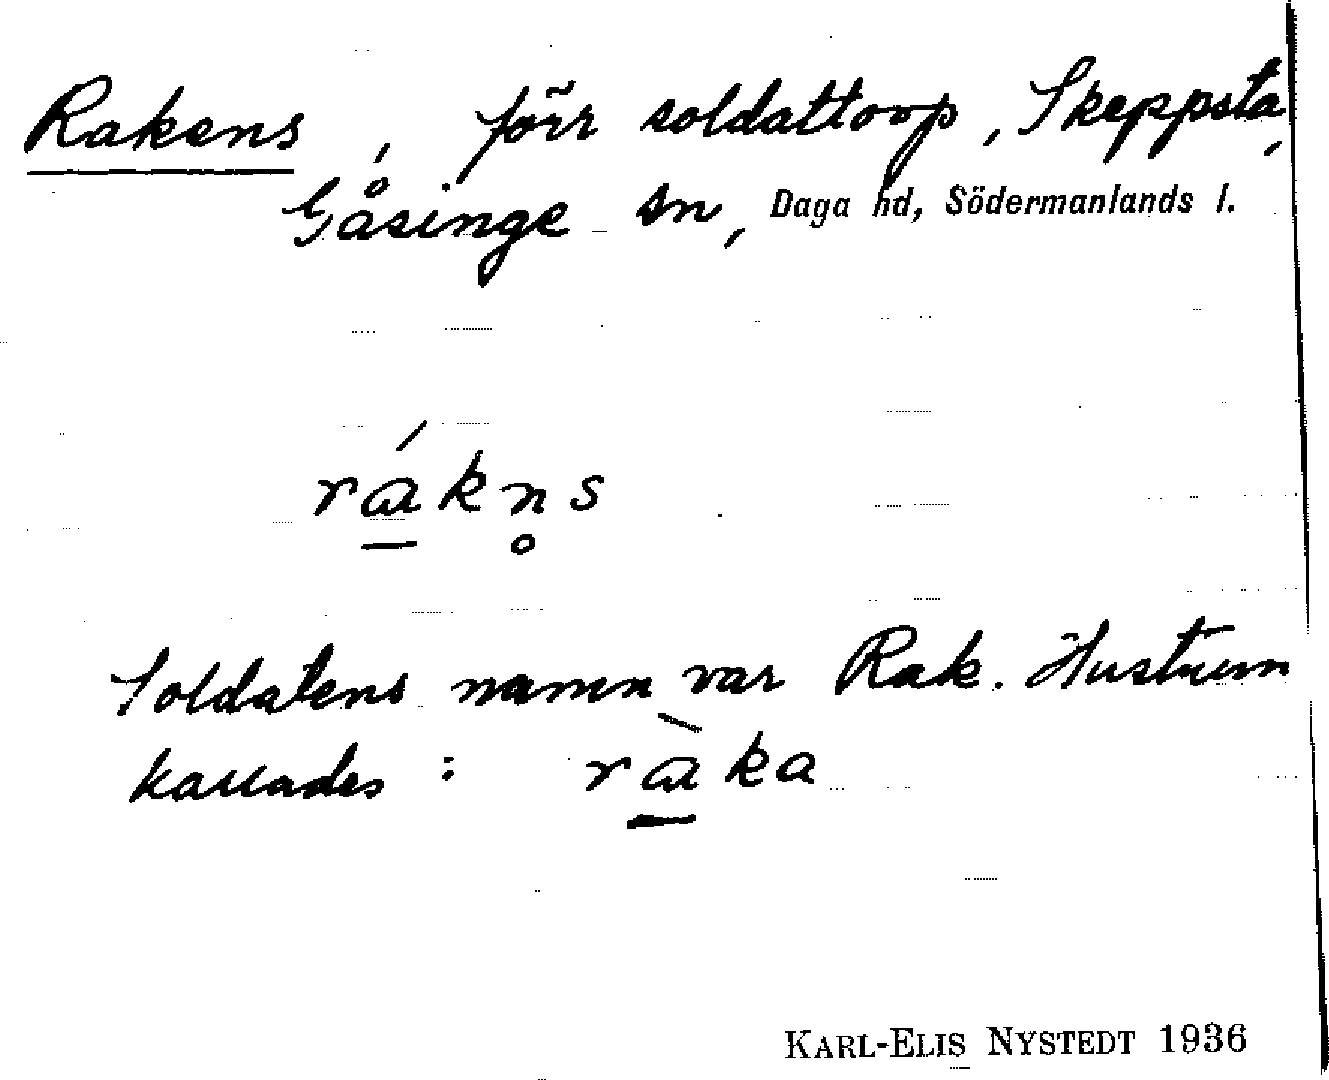 Rakens, förr soldattorp, Skeppsta,
Gåsinge sn, Daga hd, Södermanlands l.
rákn̥s
Soldatens namn var Rak. Hustrun
kallades: ràka
KARL-ELIS NYSTEDT 1936